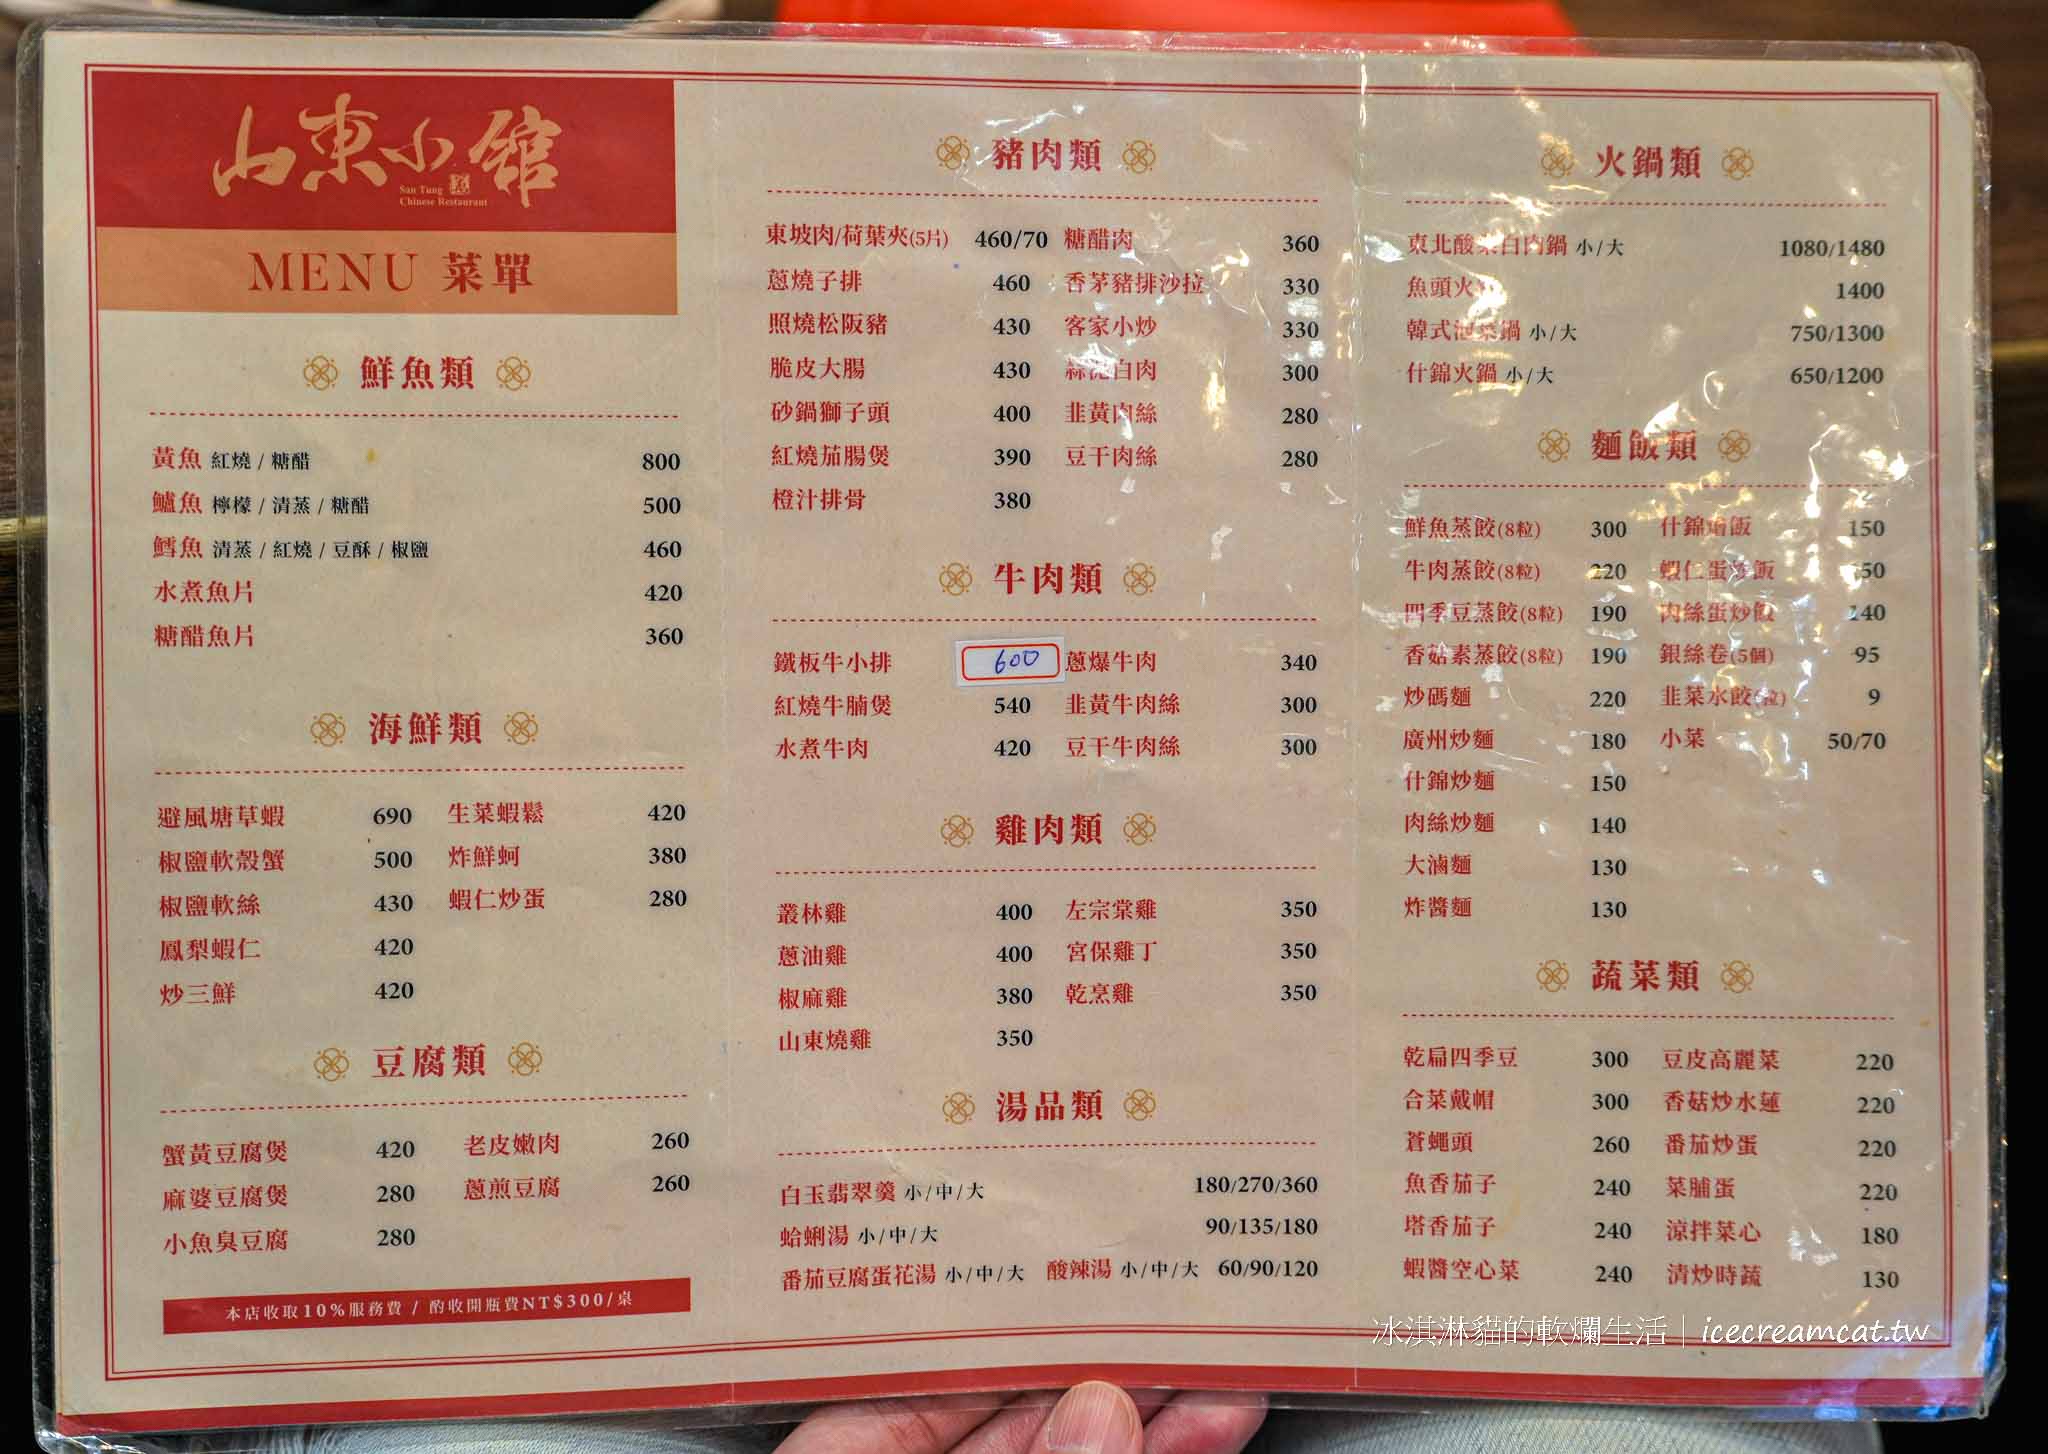 山東小館
San Tung
Chinese Restaurant
MENU 菜單
鮮魚類
黃魚 紅燒 / 糖醋 800
鱸魚 檸檬 / 清蒸 / 糖醋 500
鱈魚 清蒸 / 紅燒 / 豆酥 / 椒鹽 460
水煮魚片 420
糖醋魚片 360
海鮮類
避風塘草蝦 690 生菜蝦鬆 420
椒鹽軟殼蟹 500 炸鮮蚵 380
椒鹽軟絲 430 蝦仁炒蛋 280
鳳梨蝦仁 420
炒三鮮 420
豆腐類
蟹黃豆腐煲 420 老皮嫩肉 260
麻婆豆腐煲 280 蔥煎豆腐 260
小魚臭豆腐 280
本店收取10%服務費 / 酌收開瓶費NT$300/桌
豬肉類
東坡肉/荷葉夾(5片) 460/70 糖醋肉 360
蔥燒子排 460 香茅豬排沙拉 330
照燒松阪豬 430 客家小炒 330
脆皮大腸 430 蒜泥白肉 300
砂鍋獅子頭 400 韭黃肉絲 280
紅燒茄腸煲 390 豆干肉絲 280
橙汁排骨 380
牛肉類
鐵板牛小排 600 蔥爆牛肉 340
紅燒牛腩煲 540 韭黃牛肉絲 300
水煮牛肉 420 豆干牛肉絲 300
雞肉類
叢林雞 400 左宗棠雞 350
蔥油雞 400 宮保雞丁 350
椒麻雞 380 乾烹雞 350
山東燒雞 350
湯品類
白玉翡翠羹 小/中/大 180/270/360
蛤蜊湯 小/中/大 90/135/180
番茄豆腐蛋花湯 小/中/大 酸辣湯 小/中/大 60/90/120
火鍋類
東北酸菜白肉鍋 小/大 1080/1480
魚頭火 1400
韓式泡菜鍋 小/大 750/1300
什錦火鍋 小/大 650/1200
麵飯類
鮮魚蒸餃(8粒) 300 什錦燴飯 150
牛肉蒸餃(8粒) 220 蝦仁蛋炒飯
四季豆蒸餃(8粒) 190 肉絲蛋炒飯 140
香菇素蒸餃(8粒) 190 銀絲卷(5個) 95
炒碼麵 220 韭菜水餃(粒) 9
廣州炒麵 180 小菜 50/70
什錦炒麵 150
肉絲炒麵 140
大滷麵 130
炸醬麵 130
蔬菜類
乾扁四季豆 300 豆皮高麗菜 220
合菜戴帽 300 香菇炒水蓮 220
蒼蠅頭 260 番茄炒蛋 220
魚香茄子 240 菜脯蛋 220
塔香茄子 240 涼拌菜心 180
蝦醬空心菜 240 清炒時蔬 130
冰淇淋貓的軟爛生活 | icecreamcat.tw